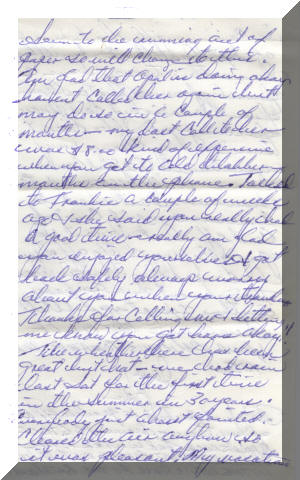 Seem to be running out of
paper so will change to this.
I'm glad that April is doing okay
haven't called her again but
may do so in couple of
months - my last call to her
was $8. - kind of expensive
when you get to
months on the phone. Talked
to Frankie a couple of weeks
ago & she said you really had
a good time - really am glad
you enjoyed yourselves & got
back safely always worry
about you when your
Thanks for calling me & letting
me know you got home okay.
The weather here has been
great but hot - we had rain
last Sat for the first time
in the summer in 30 years.
Everybody just about fainted.
Cleared the air anyhow so
it was pleasant. My vacation